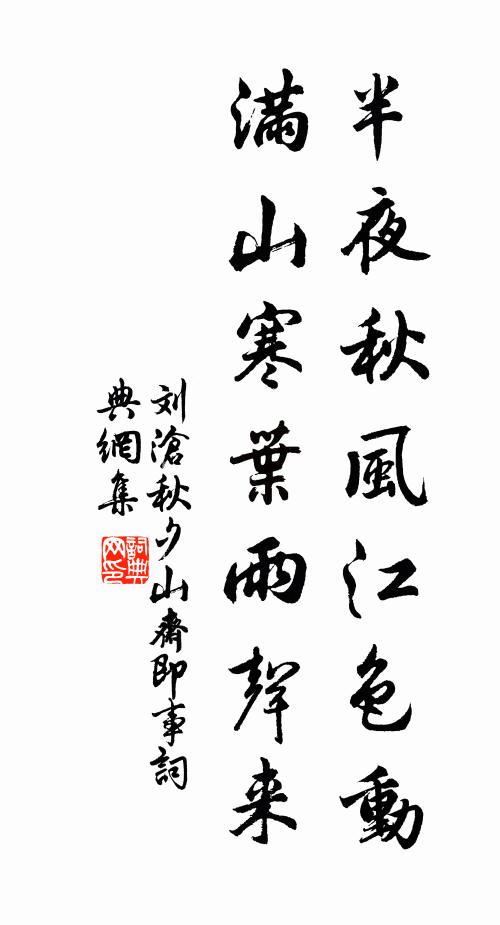 半夜秋風江色動
滿山寒葉雨聲来
刘滄秋夕山齋即事詞
典網集
詞典网印